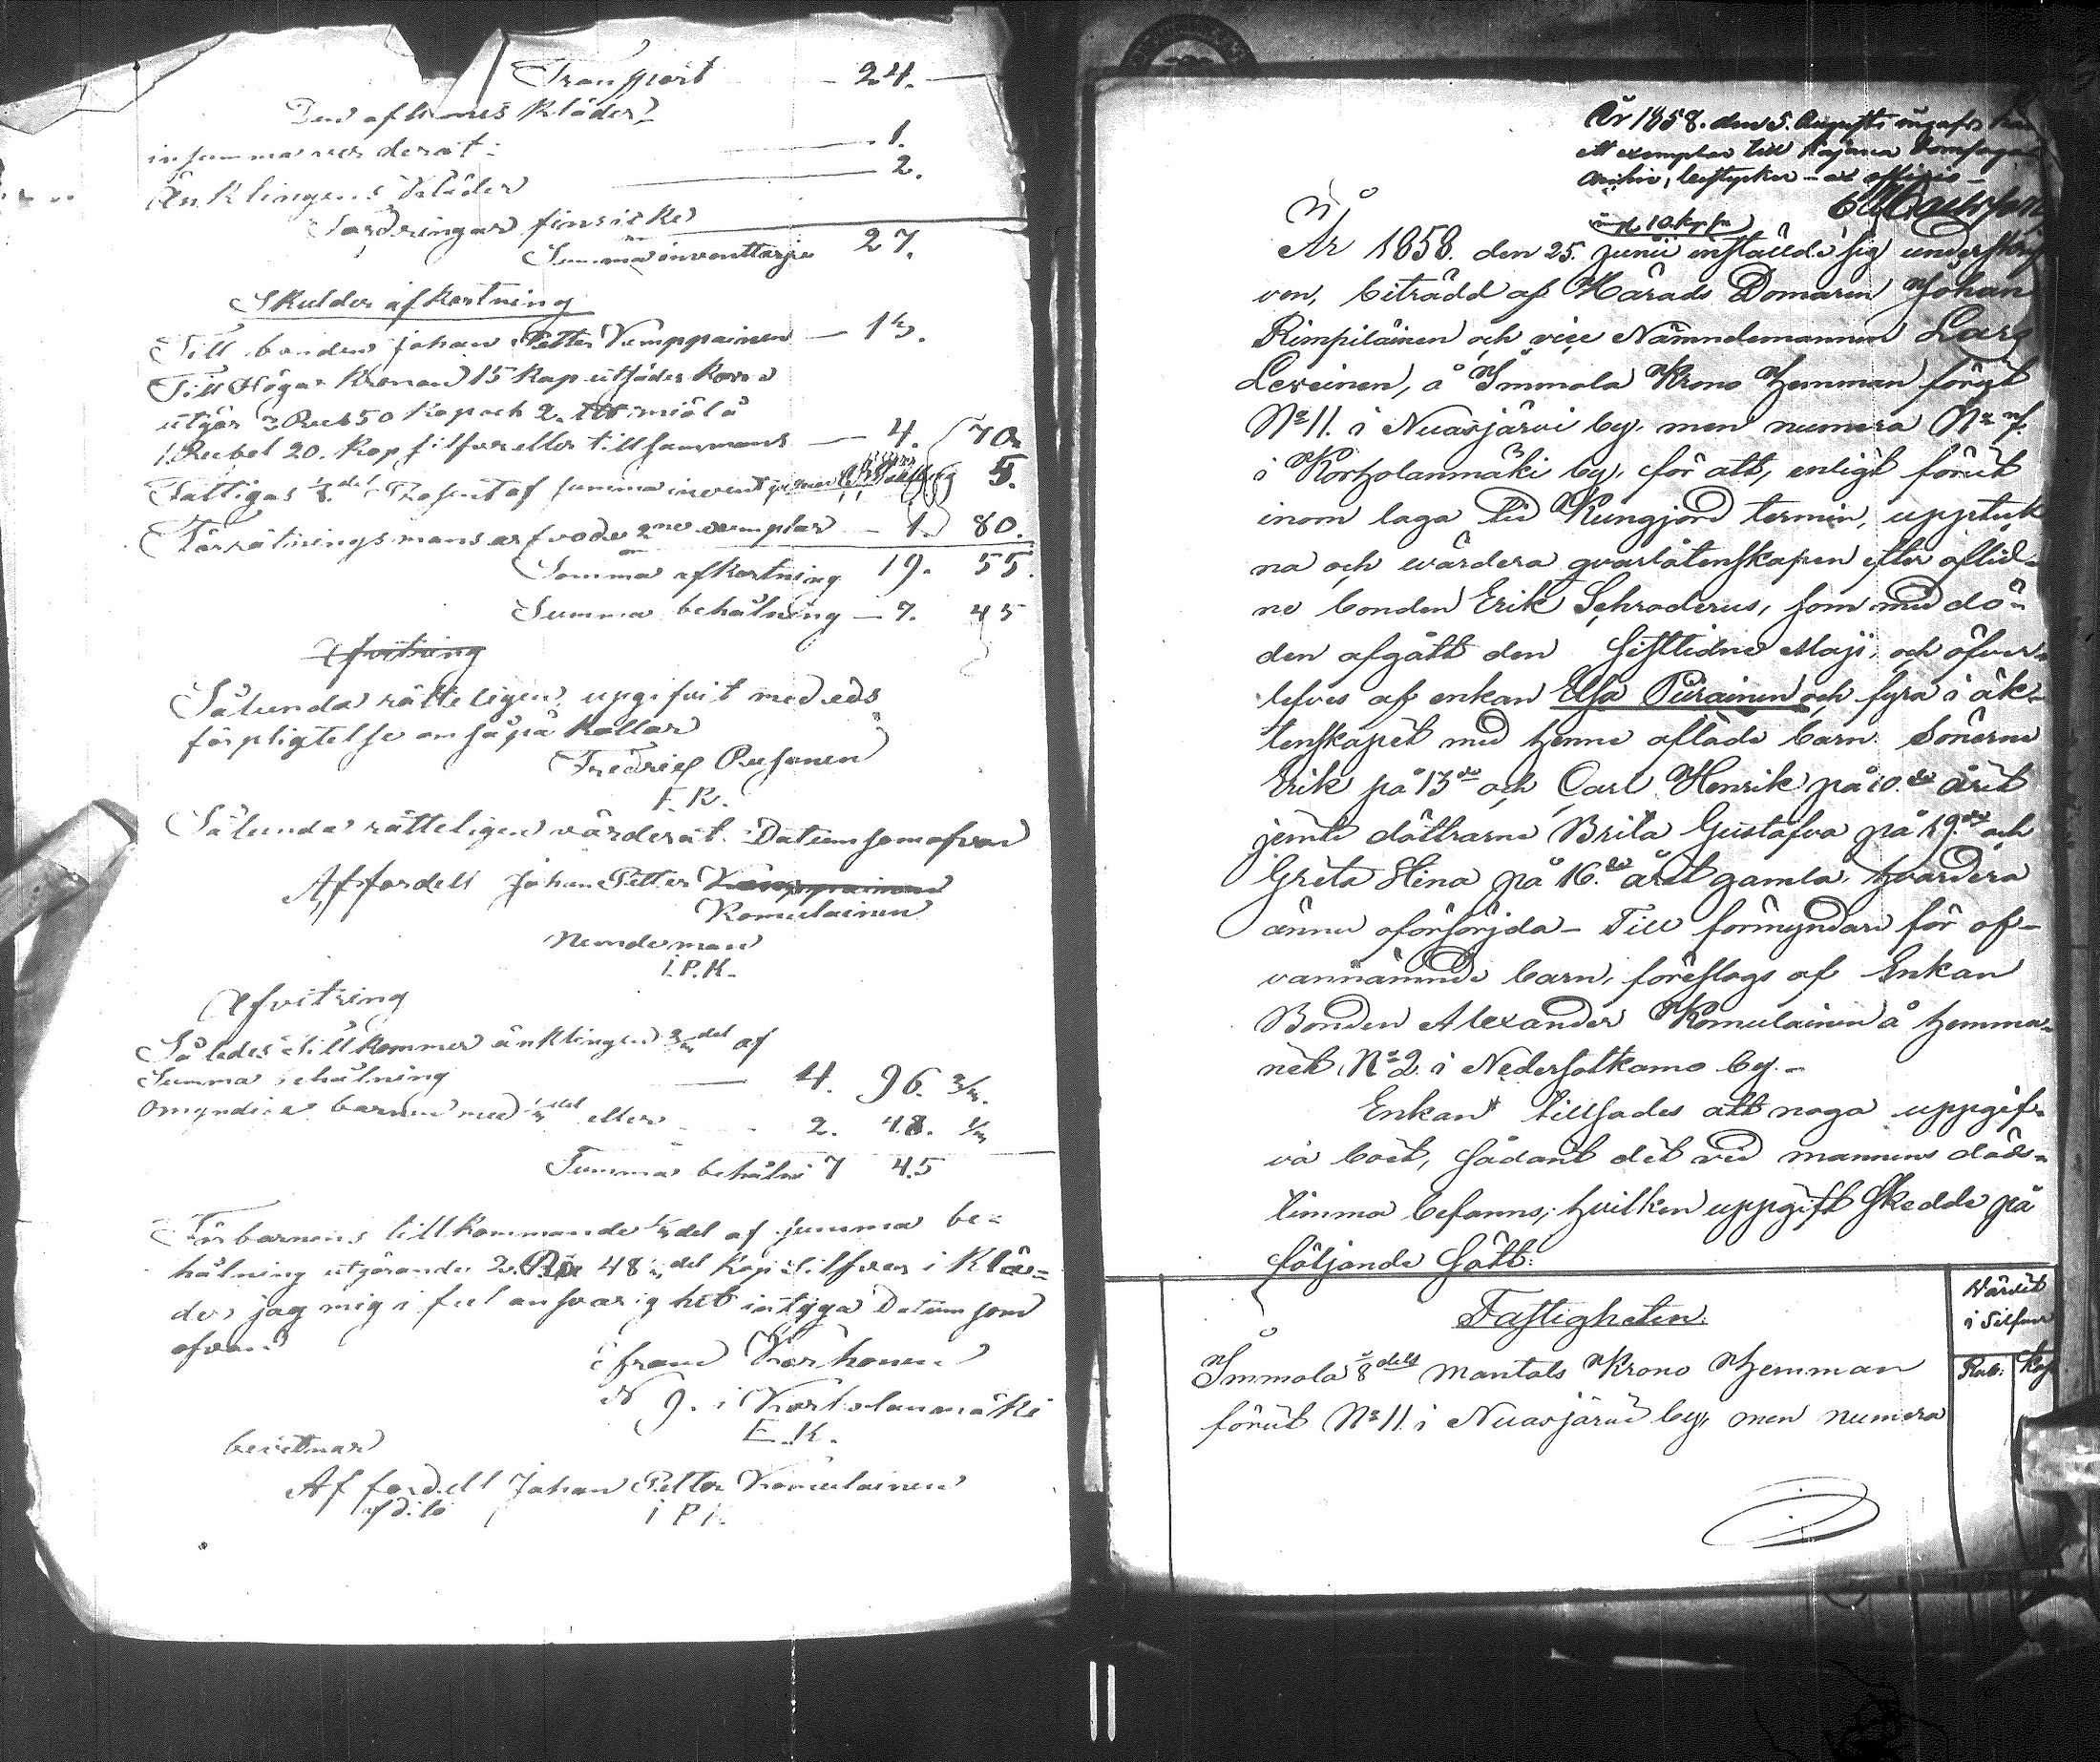 Transport — 24. —
Den aflidnes kläder
in summa verderat: — 1.
Änklingens Kläder — 2.
Fordringar fins icke
Summa inventtarje 27.
Skulder afkortning
Till bonden Johan Petter Kemppainen — 13.
Till Höga Kronan 15 Kap utsädes Korn
utgör 3 Rub 50 Kop och 2 miölö
1. Rubel 20. Kop silfver eller tillsammans — 4. 70
Fattigas 1/8 del Prosent af summa inventarje 5.
Förrätnings mans arfvode 2ne exemplar — 1. 80.
Summa afkortning 19. 55.
Summa behålning — 7. 45
Afvitring
Sålunda rätteligen uppgifvit med eds
förpligtelse om så på kallas
Fredrich Pusonen
F. R.
Sålunda rätteligen värderat. Datum som ofvan
Af fordell Johan Petter Kemppainen
Komulainen
Nemdeman
I. P. K.
Afvitring
Således tillkommer änklingen 2/3 del af
Summa behålning — 4. 96. 2/3.
Omyndiga barnen med 1/3 del eller 2. 48. 1/3
Summa behåln 7 45
För barnens tillkommande 1/3 del af summa be=
hålning utgörande 2 Rub 48 1/3 del Kop silfver i Klä=
der, jag mig i ful ansvarighet intyga Datum som
ofvan
Efraim Korhonen
N 9. i Kortolanmäki
E. K.
bevitnar
Af fordell Johan Petter Komulainen
I P K.
År 1858. den 5. Augusti ingafs
ett exemplar till Kajana Domsagas
Archiv, betyckes – ex officio –
10. kop
År 1858. den 25. Junii inställde sig underskrif
ven, biträdd af Härads Domaren Johan
Rimpiläinen och vice Nämndemannen Lars
Leveinen, å Immola Krono Hemman förut
No 11. i Nuasjärvi by, men numera No 7.
i Kortholanmäki by, för att, enligt förut
inom laga tid Kungjord termin, upptek
na och värdera qvarlåtenskapen efter aflid=
ne bonden Erik Schroderus, som med dö=
den afgått den sistledne Maji, och öfver=
lefves af enkan Elsa Piirainen och fyra i äk=
tenskapet med henne aflade barn. Sönerne
Erik på 13de och Carl Henrik på 10.de året
jemte döttrarne Brita Gustafva på 19.de och
Greta Stina på 16.de året gamla, hvardera
ännu oförsörjda – Till förmyndare för of=
vannämnde barn, föreslogs af Enkan
Bonden Alexander Komulainen å hemma=
net No 2 i Nedersotkamo by. –
Enkan tillsades att noga uppgif=
va boet, sådant det vid mannens döds=
timma befanns, hvilken uppgift skedde på
följande sått:
Fastigheten.
Värdet
i Silfver
Rub: Kop
Immola 1/8 dels mantals Krono Hemman
förut No 11. i Nuasjärvi by, men numera